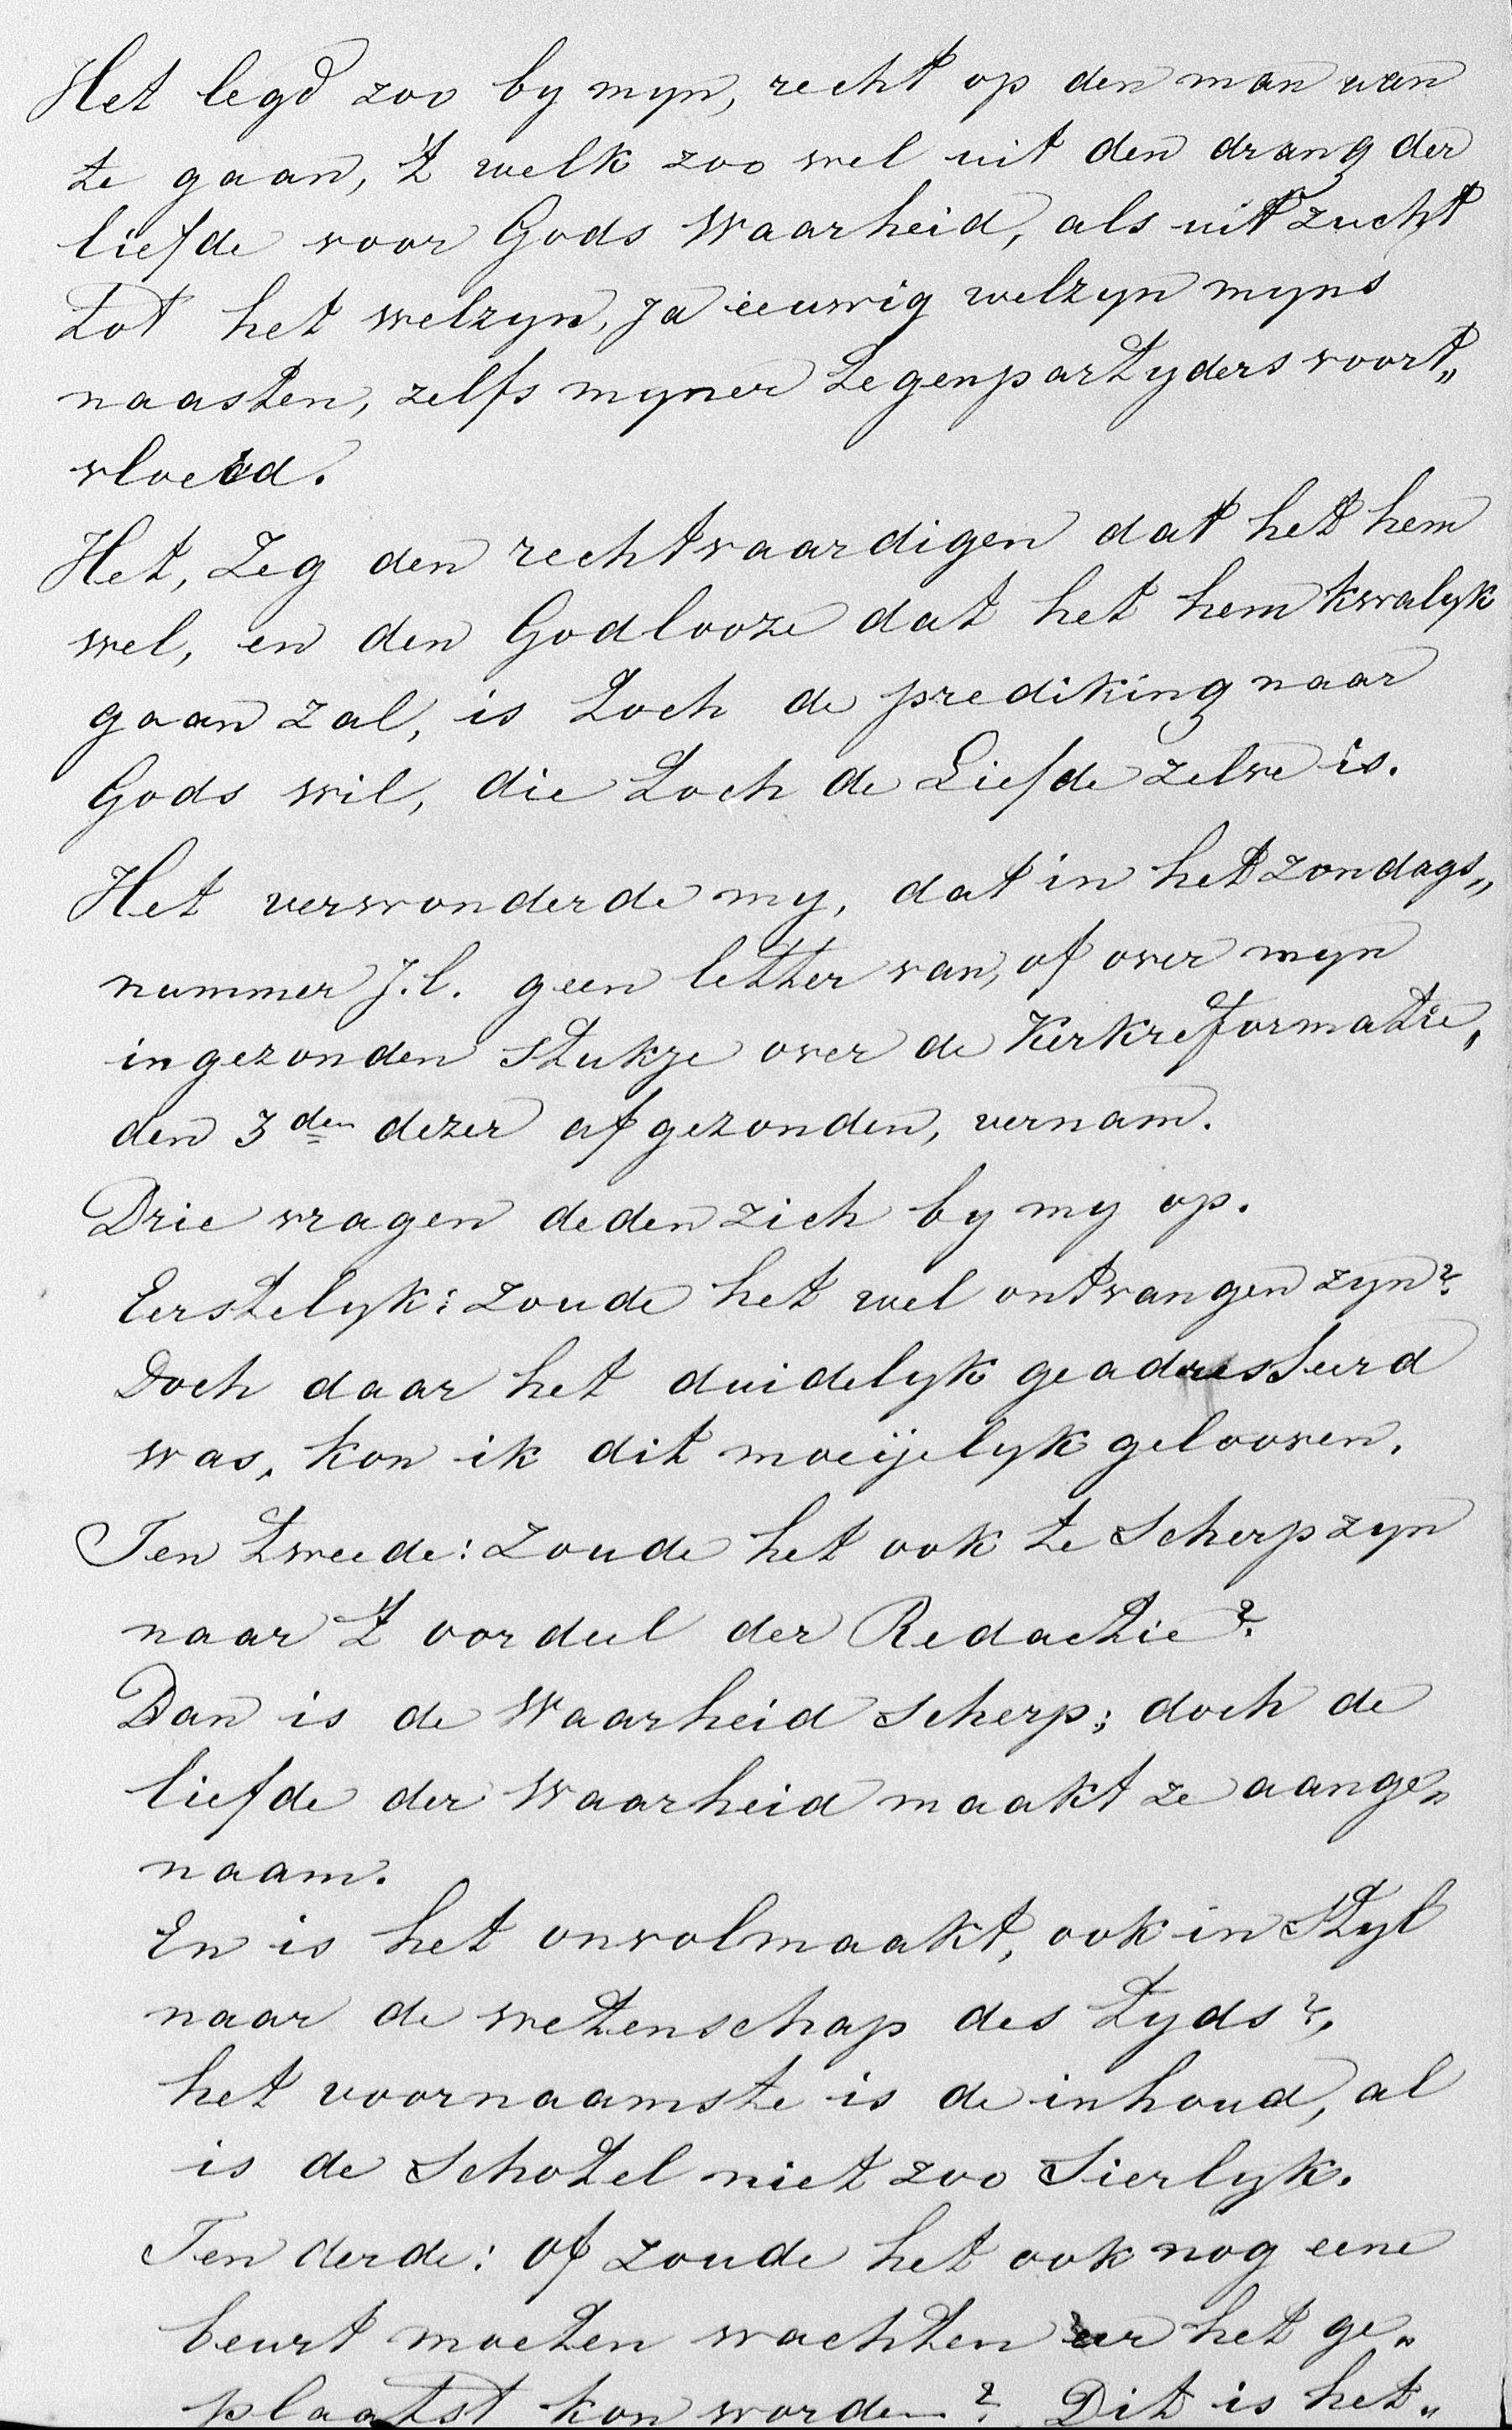 Het legd zoo by myn, recht op den man aan
te gaan, 't welk zoo wel uit den drang der
liefde voor Gods Waarheid, als uit zucht
tot het welzyn, ja eeuwig welzyn myns
naasten, zelfs myner tegenpartyders voort„
vloeid.
Het, Zeg den rechtvaardigen dat het hem
wel, en den Godlooze dat het hem kwalyk
gaan zal, is toch de prediking naar
Gods wil, die toch de Liefde zelve is.
Het verwonderde my, dat in het zondags„
nummer j.l. geen letter van, of over myn
ingezonden stukje over de Kerkreformatie,
den 3den dezer afgezonden, vernam.
Drie vragen deden zich by my op.
Eerstelyk: zoude het wel ontvangen zyn?
Doch daar het duidelyk geadresseerd
was, kon ik dit moeijelyk gelooven.
Ten tweede: zoude het ook te scherp zyn
naar 't oordeel der Redactie?
Dan is de Waarheid scherp; doch de
liefde der Waarheid maakt ze aange„
naam.
En is het onvolmaakt, ook in Styl
naar de wetenschap des tyds?,
het voornaamste is de inhoud, al
is de Schotel niet zoo Sierlyk.
Ten derde: of zoude het ook nog eene
beurt moeten wachten eer het ge„
plaatst kon worden? Dit is het„